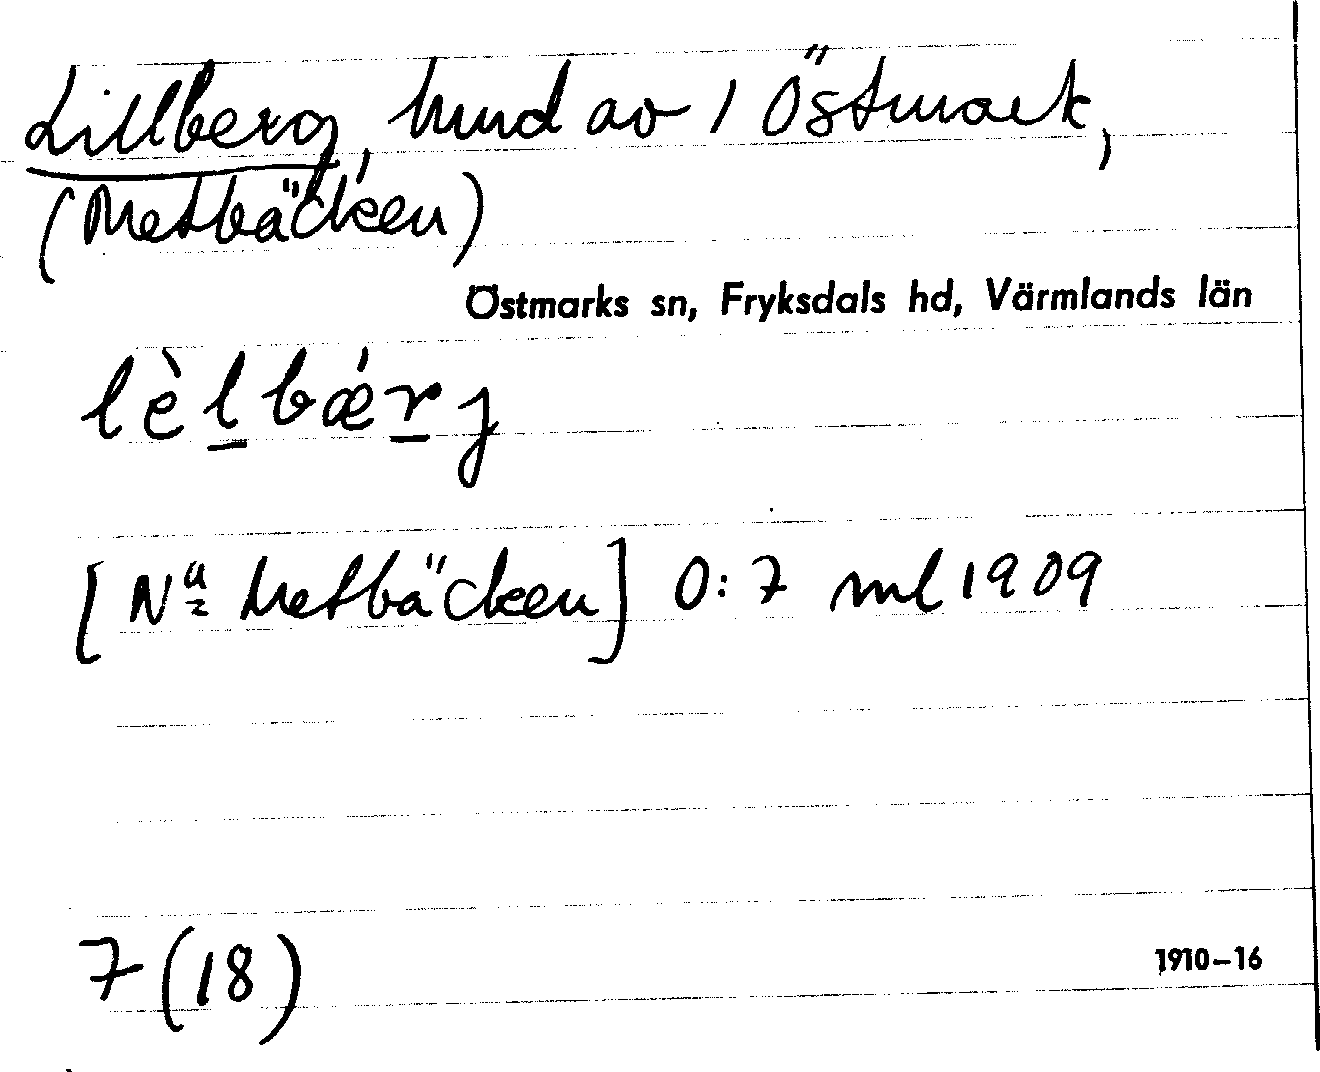 Lillberg, hmd av 1 Östmark,
(Metbäcken)
Östmarks sn, Fryksdals hd, Värmlands län
lèl̲bǽr̲j
[Nª Metbäcken] 0:7 ml 1909
7(18)
1910–16